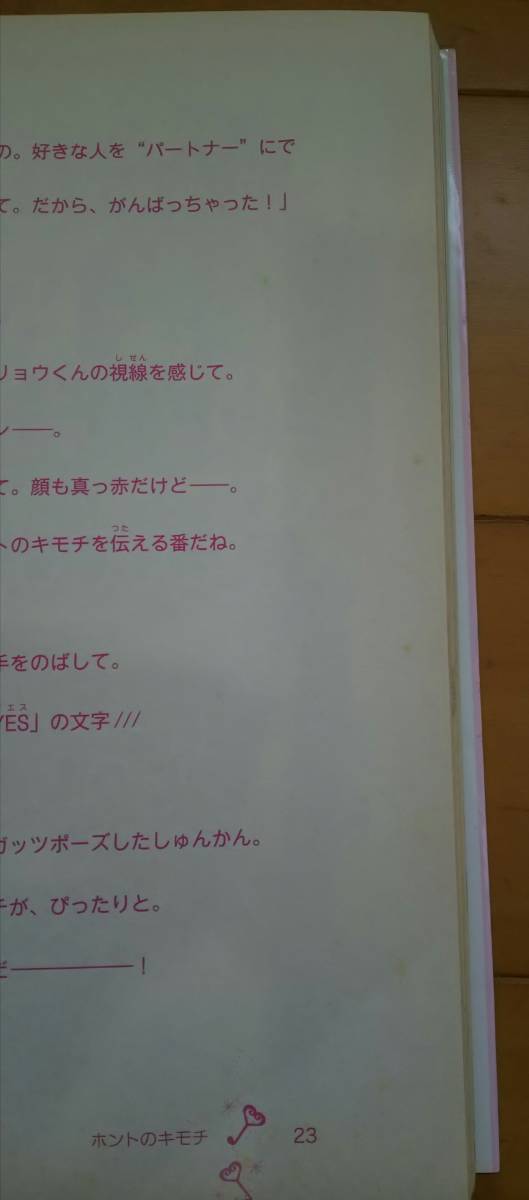 の。好きな人を“パートナー”にで
て。だから、がんばっちゃった！」
リョウくんの視線を感じて。
しせん
ン――。
て。顔も真っ赤だけど――。
トのキモチを伝える番だね。
つた
手をのばして。
YES」の文字///
エス
ガッツポーズしたしゅんかん。
チが、ぴったりと。
だ――――――！
ホントのキモチ 23